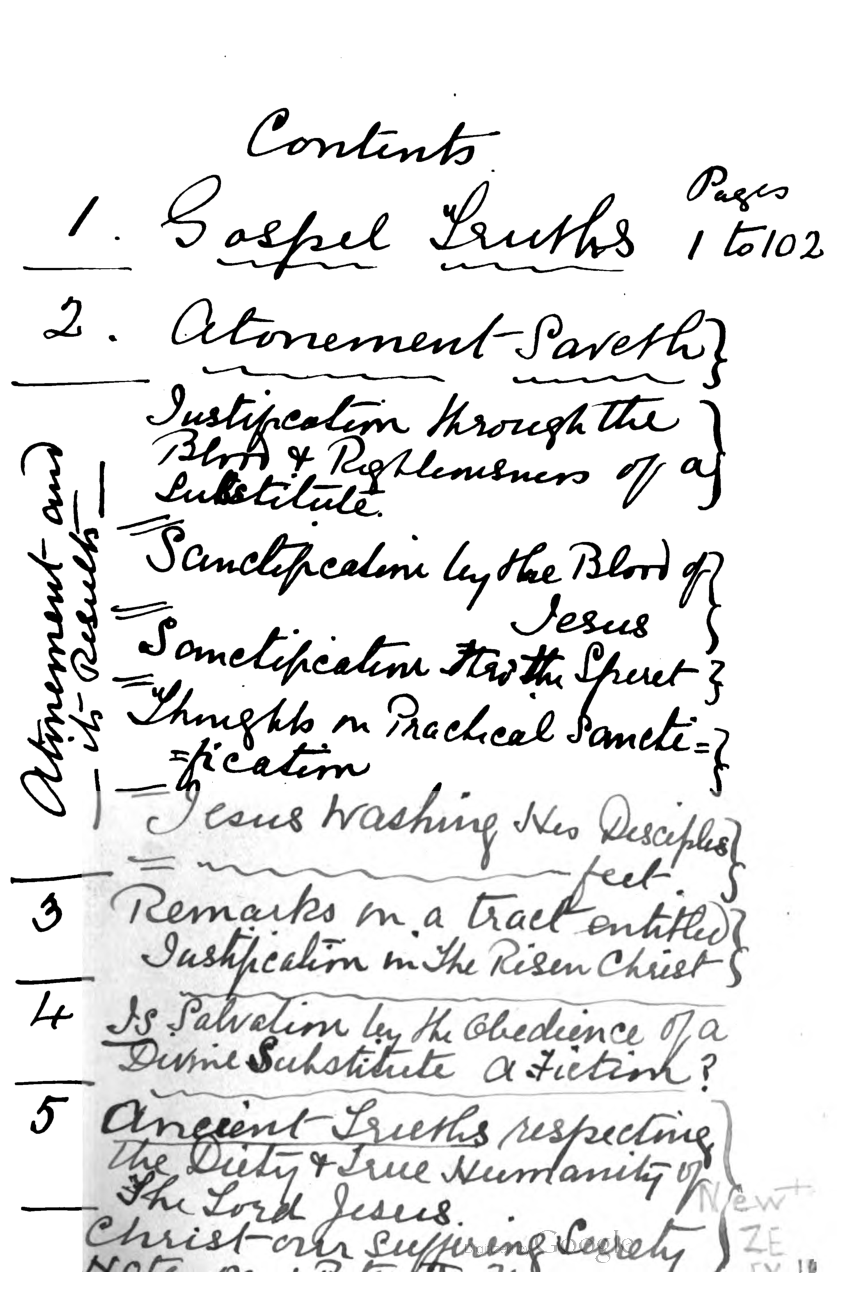 Contents
Pages
1. Gospel Truths 1 to 102
2. Atonement Saveth
Atonement and
its Results
Justification through the
Blood & Righteousness of a
Substitute.
Sanctification by the Blood of
Jesus
Sanctification thro the Speret
Thoughts on Practical Sancti=
=fication
Jesus Washing His Disciples
feet.
3 Remarks on a tract entitled
Justification in The Risen Christ
4 Is Salvation by the Obedience of a
Divine Substitute a Fiction?
5 Ancient Truths respecting
the Diety & True Humanity of
The Lord Jesus.
New+
Christ our suffering Surety
ZE
Google